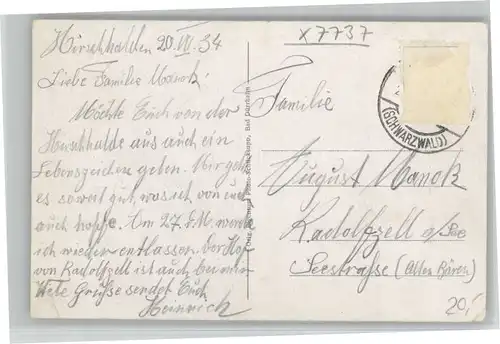 x7737
Hirschhalden 20.VII.34
Liebe Familie Manok!
Möchte Euch von der
Hirschhalde aus auch ein
Lebenszeichen geben. Mir geht
es soweit gut, was ich von euch
auch hoffe. Am 27. d.M. werde
ich wieder entlassen.
von Radolfzell ist auch bei mir
Viele Grüsse sendet Euch
Heinrich
Bad Dürrheim
(SCHWARZWALD)
Familie
August Manok
Radolfzell a/See
Seestraße (Alten Bären)
20,-